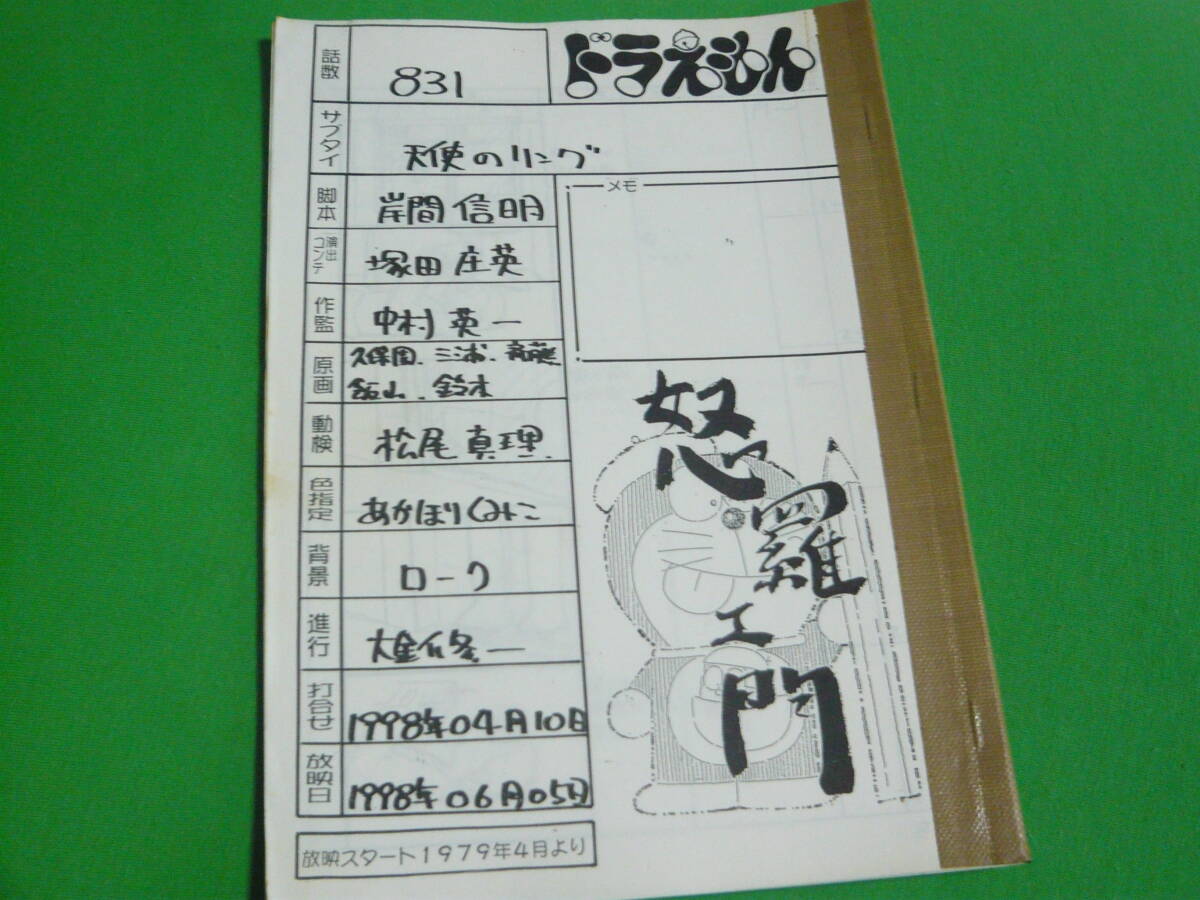 話数 831
ドラえもん
サブタイ 天使のリング
脚本 岸間信明
メモ
演出コンテ 塚田庄英
作監 中村英一
原画 久保園.三浦.斉藤
飯山.鈴木
動検 松尾真理
色指定 あかほりくみこ
背景 ローク
進行 大金修一
打合せ 1998年04月10日
放映日 1998年06月05日
放映スタート1979年4月より
怒羅エ門